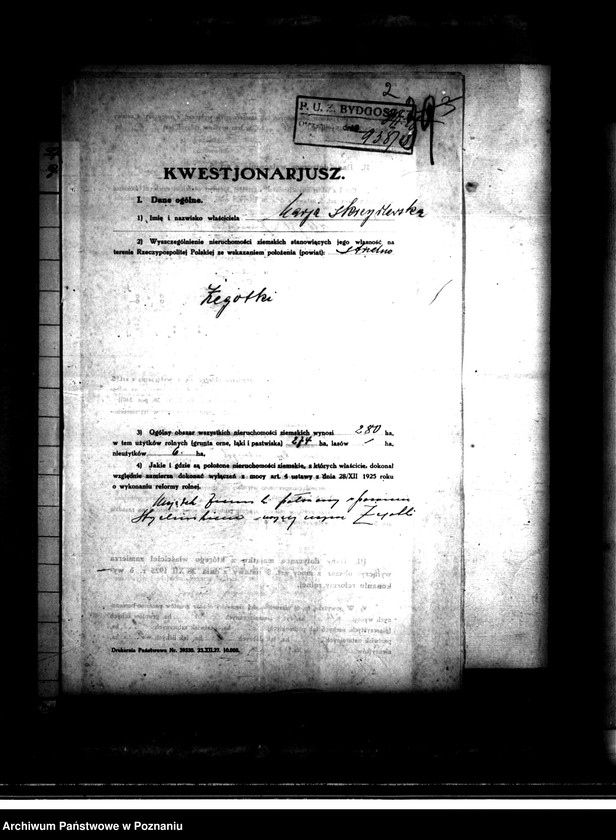 2
3
P. U. Z. BYDGOSZ
958
KWESTJONARJUSZ.
I. Dane ogólne.
1) Imię i nazwisko właściciela Marja Skrzydlewska
2) Wyszczególnienie nieruchomości ziemskich stanowiących jego własność na
terenie Rzeczypospolitej Polskiej ze wskazaniem położenia (powiat): Strzelno
Żegotki
3) Ogólny obszar wszystkich nieruchomości ziemskich wynosi 280 ha,
w tem użytków rolnych (grunta orne, łąki i pastwiska) 274 ha, lasów / ha,
nieużytków 6 ha,
4) Jakie i gdzie są położone nieruchomości ziemskie, z których właściciel dokonał
względnie zamierza dokonać wyłączeń z mocy art. 4 ustawy z dnia 28/XII 1925 roku
o wykonaniu reformy rolnej.
Majątek położony w powiecie
Strzelińskim Żegotki
Drukarnia Państwowa Nr. 39330. 22.XII.27. 10.000.
Archiwum Państwowe w Poznaniu